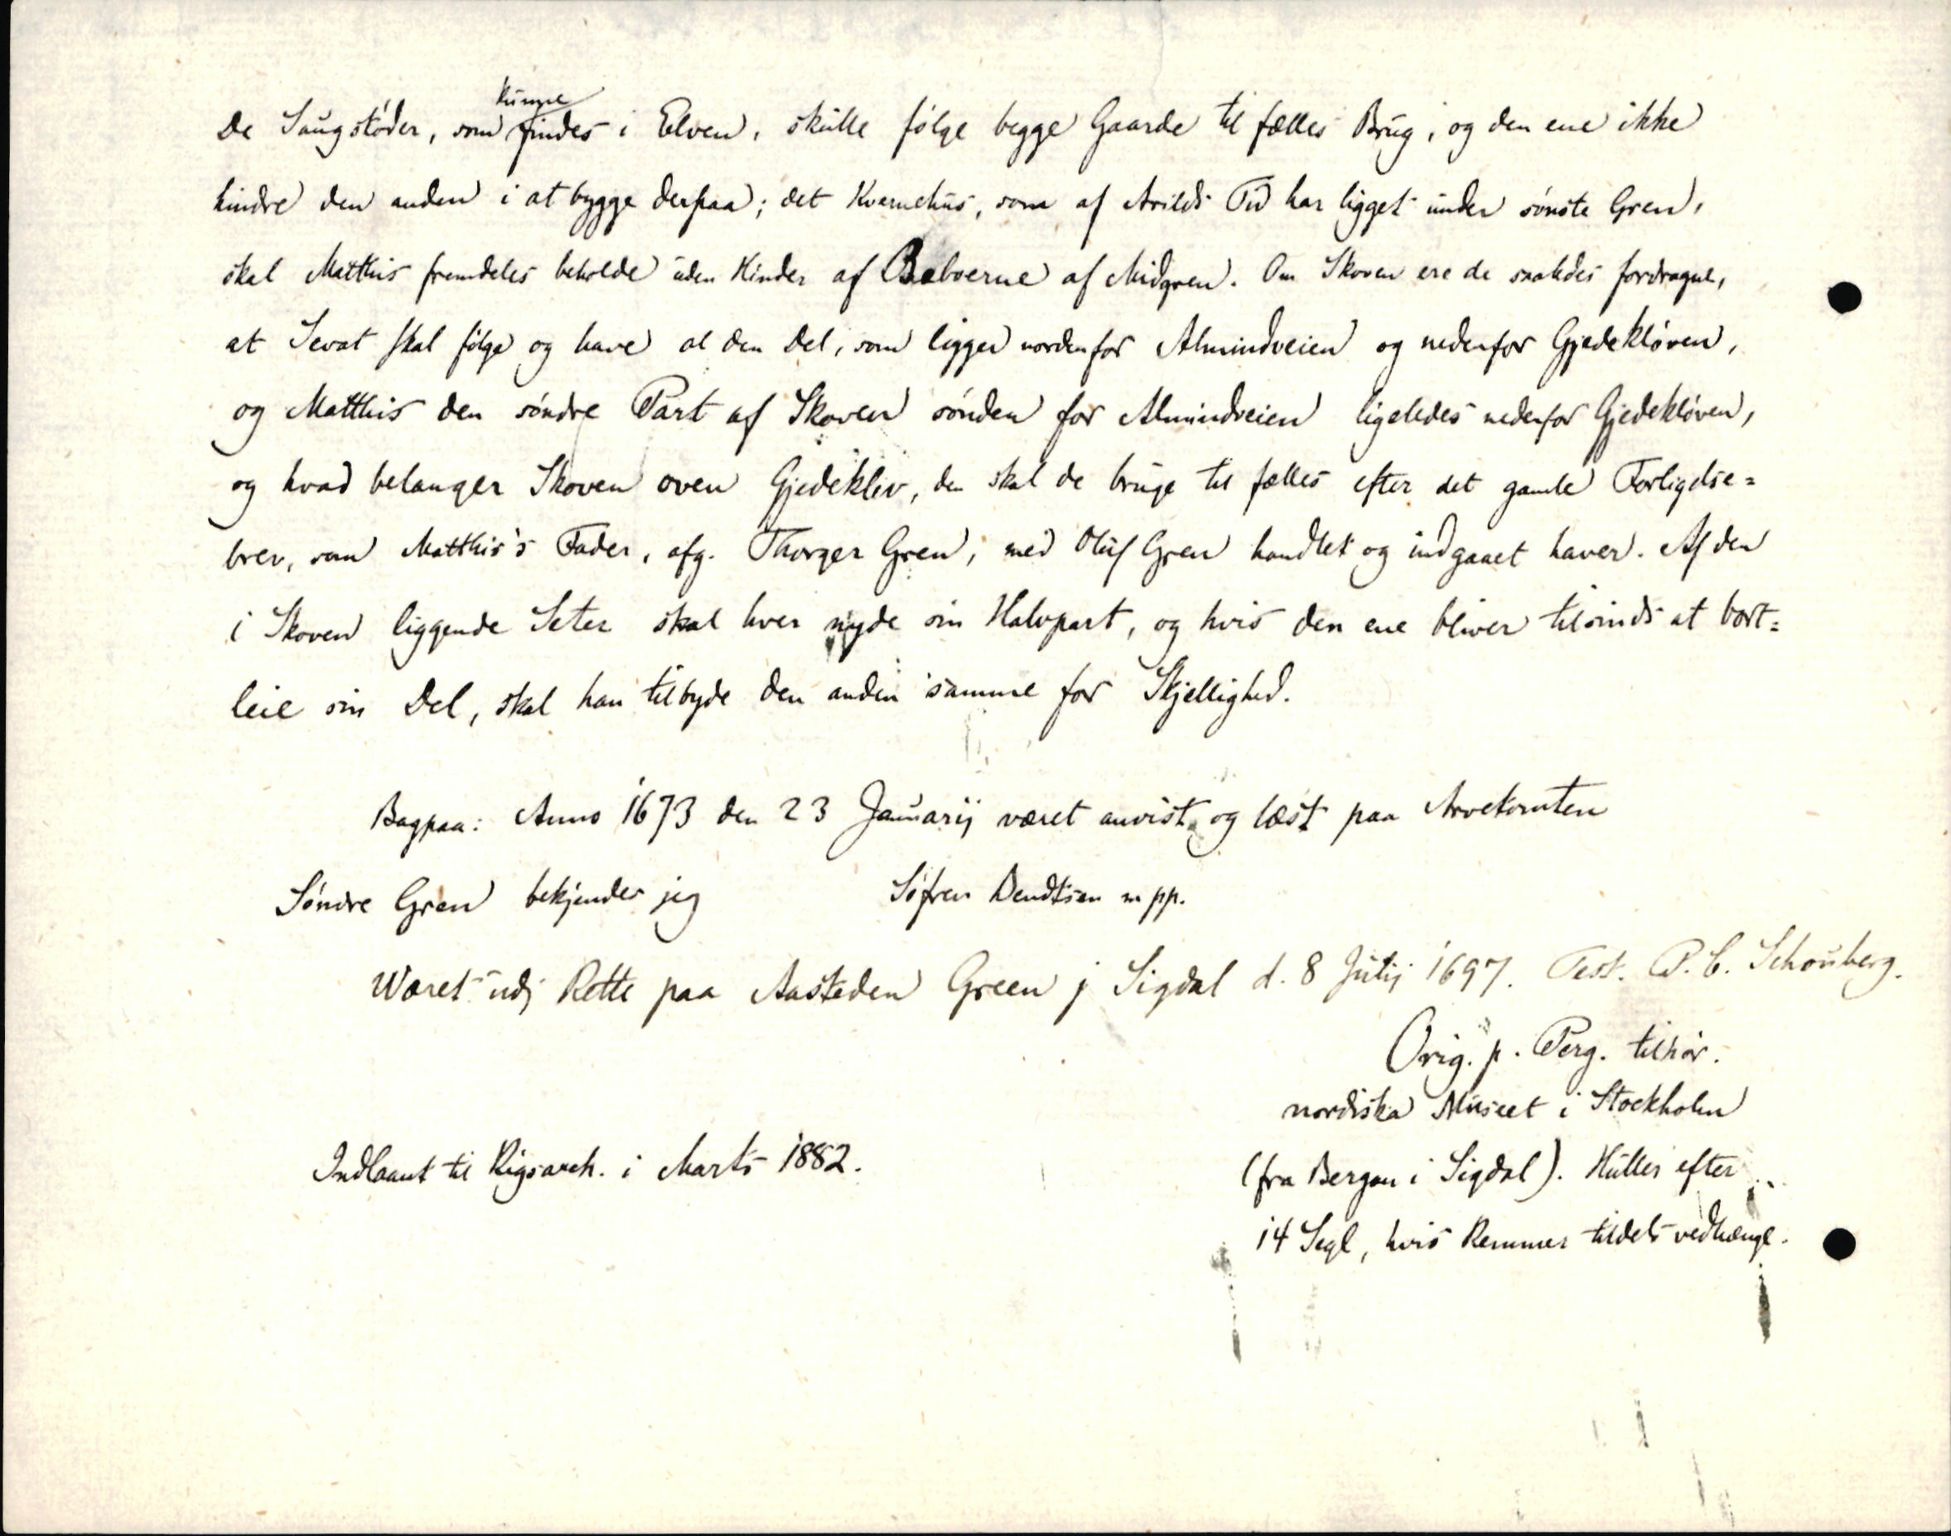 De Saugstøder, som kunne findes i Elven, skulle følge begge Gaarde til fælles Brug, og den ene ikke
hindre den anden i at bygge derpaa; det Kvernehus, som af Arilds Tid har ligget under sønste Gren,
skal Matthis fremdeles beholde uden Hinder af Beboerne af Midgren. Om Skoven ere de saaledes fordragne,
at Sevat skal følge og have al den Del, som ligger nordenfor Almindveien og nedenfor Gjedekløven,
og Matthis den søndre Part af Skoven sønden for Almindveien ligeledes nedenfor Gjedekløven,
og hvad belanger Skoven oven Gjedekliv, den skal de bruge til fælles efter det gamle Forligelse=
brev, som Matthis's Fader, afg. Thorger Gren, med Oluf Gren handlet og indgaaet haver. Af den
i Skoven liggende Seter skal hver nyde sin Halvpart, og hvis den ene bliver tilsinds at bort=
leie sin Del, skal han tilbyde den anden samme for Skjellighed.
Bagpaa: Anno 1673 den 23 Januarij været anvist og læst paa Arvetomten
Søndre Gren bekjender jeg Søfren Bendtsen m pp.
Wæret udj Rette paa Aasteden Green j Sigdal d. 8 Julij 1697. Test. P. C. Schouberg.
Orig. p. Perg. tilhør.
nordiska Museet i Stockholm
(fra Bergan i Sigdal). Huller efter
14 Segl, hvis Remmer tildels vedhænge.
Indlaant til Rigsarch. i Marts 1882.